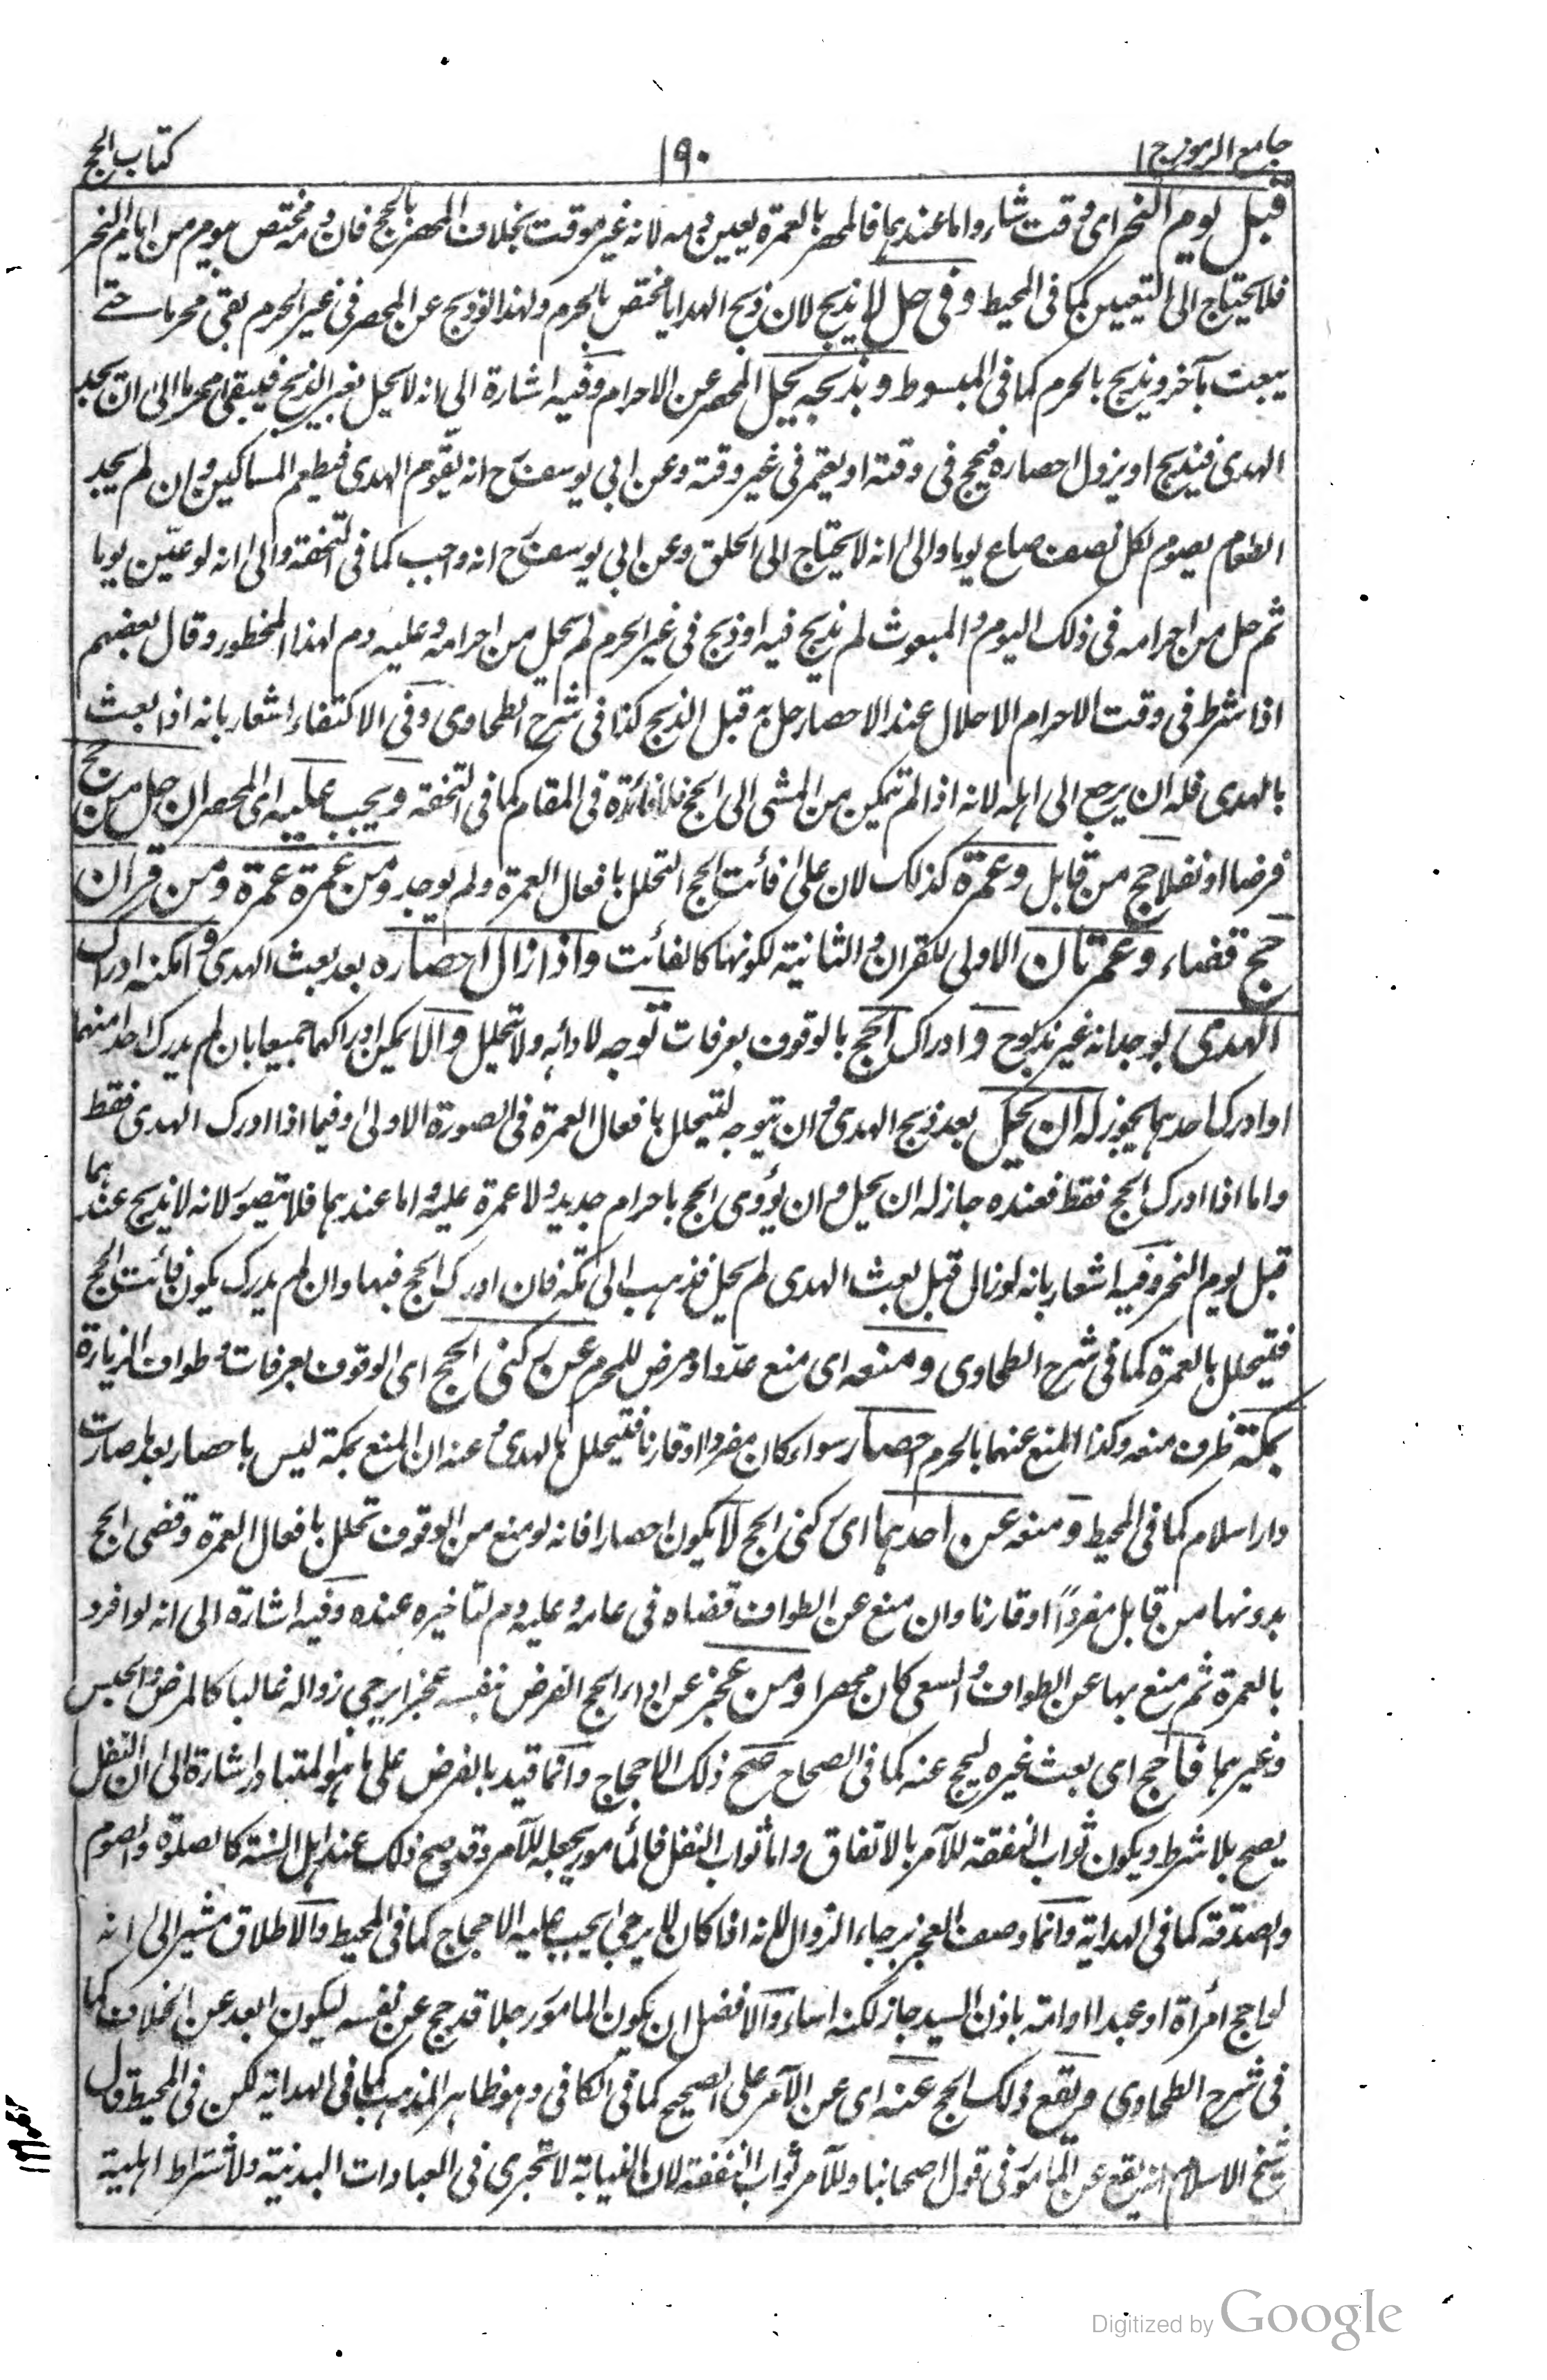 جامع الرموز ج ١
١٩٠
كتاب الحج
قبل يوم النحر اى وقت شاء واما عندهما فالمحصر بالعمرة يعين يومه لانه غير موقت بخلاف المحصر بالحج فان دمه مختص بيوم من ايام النحر
فلا يحتاج الى التعيين كما فى المحيط وفى حل لا يذبح لان ذبح الهدايا مختص بالحرم ولهذا لو ذبح عن المحصر فى غير الحرم بقى محرما حتى
يبعث بآخر ويذبح بالحرم كما فى المبسوط وبذبحه يحل المحصر عن الاحرام وفيه اشارة الى انه لا يحل بغير الذبح فيبقى محرما الى ان يجد
الهدى فيذبح او يزول احصاره فيحج فى وقته او يعتمر فى غير وقته وعن ابى يوسف رح انه يقوم الهدى فيطعم المساكين وان لم يجد
الطعام يصوم لكل نصف صاع يوما والى انه لا يحتاج الى الحلق وعن ابى يوسف رح انه واجب كما فى التحفة والى انه لو عين يوما
ثم حل من احرامه فى ذلك اليوم والمبعوث لم يذبح فيه او ذبح فى غير الحرم لم يحل من احرامه وعليه دم لهذا المحظور وقال بعضهم
اذا شرط فى وقت الاحرام الاحلال عند الاحصار حل به قبل الذبح كذا فى شرح الطحاوى وفى الاكتفاء اشعار بانه اذا بعث
بالهدى فله ان يرجع الى اهله لانه اذا لم يتمكن من المشى الى الحج فلا فائدة فى المقام كما فى التحفة ويجب عليه اى المحصر ان حل من حج
فرضا او نفلا حج من قابل وعمرة كذلك لان على فائت الحج التحلل بافعال العمرة ولم يوجد ومن عمرة عمرة ومن قران
حج قضاء وعمرتان الاولى للقران والثانية لكونها كالفائت واذا زال احصاره بعد بعث الهدى وامكنه ادراك
الهدى بوجدانه غير مذبوح وادراك الحج بالوقوف بعرفات توجه لادائه ولا تحليل والا يمكن ادراكهما جميعا بان لم يدرك احدا منهما
او ادرك احدهما يجوز له ان يحل بعد ذبح الهدى وان يتوجه ليتحلل بافعال العمرة فى الصورة الاولى وفيما اذا ادرك الهدى فقط
واما اذا ادرك الحج فقط فعنده جاز له ان يحل وان يؤدى الحج باحرام جديد ولا عمرة عليه واما عندهما فلا يتصور لانه لا يذبح عندهما
قبل يوم النحر وفيه اشعار بانه لو زال قبل بعث الهدى لم يحل فذهب الى مكة فان ادرك الحج فبها وان لم يدرك يكون فائت الحج
فيتحلل بالعمرة كما فى شرح الطحاوى ومنعه اى منع عدو او مرض للمحرم عن ركنى الحج اى الوقوف بعرفات وطواف الزيارة
بمكة ظرف منعه وكذا المنع عنهما بالحرم احصار سواء كان مفردا او قارنا فيتحلل بالهدى وعنه ان المنع بمكة ليس باحصار بعد ما صارت
دار اسلام كما فى المحيط ومنعه عن احدهما اى ركنى الحج لا يكون احصارا فانه لو منع من الوقوف تحلل بافعال العمرة وقضى الحج
بدونها من قابل مفردا او قارنا وان منع عن الطواف قضاه فى عامه وعليه دم لتاخيره عنده وفيه اشارة الى انه لو افرد
بالعمرة ثم منع بها عن الطواف والسعى كان محصرا ومن عجز عن اداء الحج الفرض بنفسه عجزا يرجى زواله غالبا كالمرض والحبس
وغيرهما فاحج اى بعث غيره ليحج عنه كما فى الصحاح صح ذلك الاحجاج وانما قيد بالفرض على ما هو المتبادر اشارة الى ان النفل
يصح بلا شرط ويكون ثواب النفقة للآمر بالاتفاق واما ثواب النفل فالمامور يجعله للآمر وقد صح ذلك عند اهل السنة كالصلوة والصوم
والصدقة كما فى الهداية وانما وصف العجز برجاء الزوال لانه اذا كان لا يرجى يجب عليه الاحجاج كما فى المحيط والاطلاق مشير الى انه
لو احج امرأة او عبدا او امة باذن السيد جاز لكنه اساء والافضل ان يكون المامور رجلا قد حج عن نفسه ليكون ابعد عن الخلاف كما
فى شرح الطحاوى ويقع ذلك الحج عنه اى عن الآمر على الصحيح كما فى الكافى وهو ظاهر المذهب كما فى الهداية لكن فى المحيط قال
شيخ الاسلام انه يقع عن المامور فى قول اصحابنا وللآمر ثواب النفقة لان النيابة لا تجرى فى العبادات البدنية ولاشتراط اهلية
Digitized by Google